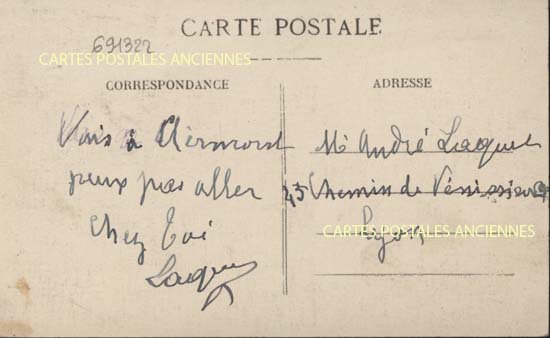 CARTE POSTALE
691322
CARTES POSTALES ANCIENNES
CORRESPONDANCE
ADRESSE
Vais à Clermont
peux pas aller
chez toi
Mr André Laquet
45 Chemin de Vénissieux
CARTES POSTALES ANCIENNES
Lyon